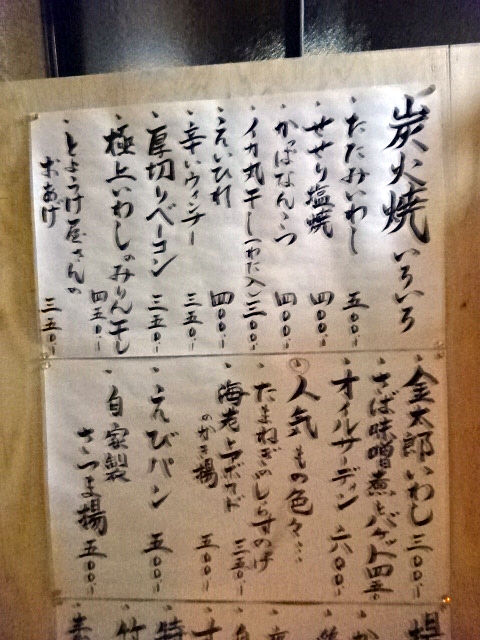 炭火焼 いろいろ
・たたみいわし 五〇〇-
・せせり塩焼 四〇〇-
・かっぱなんこつ 四〇〇-
・イカ丸干し(わた入) 三〇〇-
・えいひれ 四〇〇-
・辛いウィンナー 三五〇-
・厚切りベーコン 三五〇-
・極上いわしのみりん干し 四五〇-
・とようけ屋さんの
おあげ 三五〇-
・金太郎いわし 三〇〇-
・さば味噌煮とバケット 四五〇-
・オイルサーディン 六〇〇-
人気もの色々…
・たまねぎのしらすのけ 三五〇-
・海老とアボカド
のかき揚 五〇〇-
・えびパン 五〇〇-
・自家製
さつま揚 五〇〇-